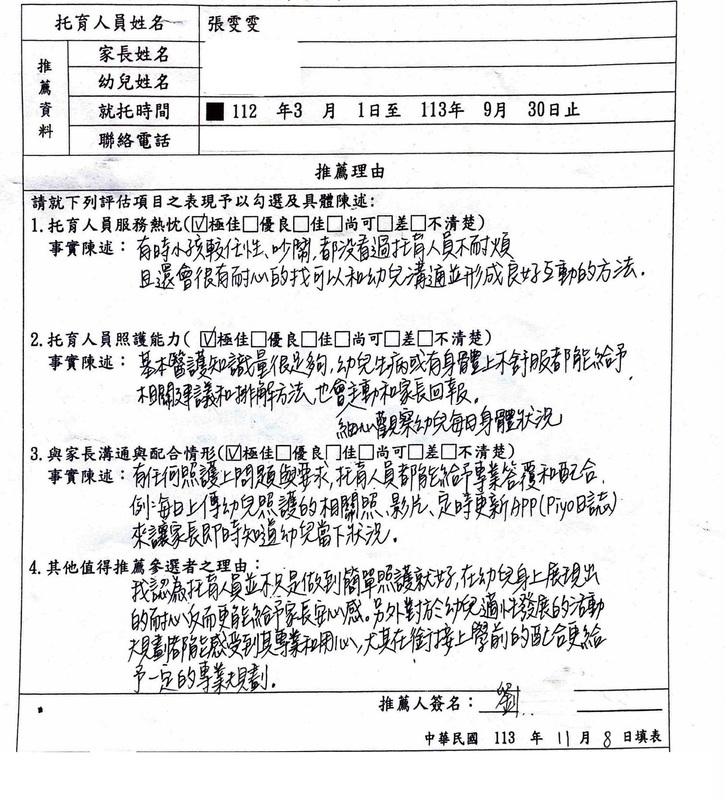 托育人員姓名 張雯雯
推薦資料
家長姓名
幼兒姓名
就托時間 ■ 112 年3 月 1日至 113年 9月 30日止
聯絡電話
推薦理由
請就下列評估項目之表現予以勾選及具體陳述:
1.托育人員服務熱忱(☑極佳□優良□佳□尚可□差□不清楚)
事實陳述:有時小孩較任性、吵鬧,都沒看過托育人員不耐煩
且還會很有耐心的找可以和幼兒溝通並形成良好互動的方法.
2.托育人員照護能力( ☑極佳□優良□佳□尚可□差□不清楚)
事實陳述:基本醫護知識量很足夠,幼兒生病或有身體上不舒服都能給予
相關建議和排解方法,也會主動和家長回報。
細心觀察幼兒每日身體狀況
3.與家長溝通與配合情形(☑極佳□優良□佳□尚可□差□不清楚)
事實陳述:有任何照護上問題與要求,托育人員都能給予專業答覆和配合.
例:每日上傳幼兒照護的相關照、影片、定時更新APP(Piyo日誌)
來讓家長即時知道幼兒當下狀況.
4.其他值得推薦參選者之理由:
我認為托育人員並不只是做到簡單照護就好,在幼兒身上展現出
的耐心反而更能給予家長安心感.另外對於幼兒適性發展的活動
規劃都能感受到其專業和用心,尤其在銜接上學前的配合更給
予一定的專業規劃.
推薦人簽名:劉
中華民國 113 年 11 月 8 日填表